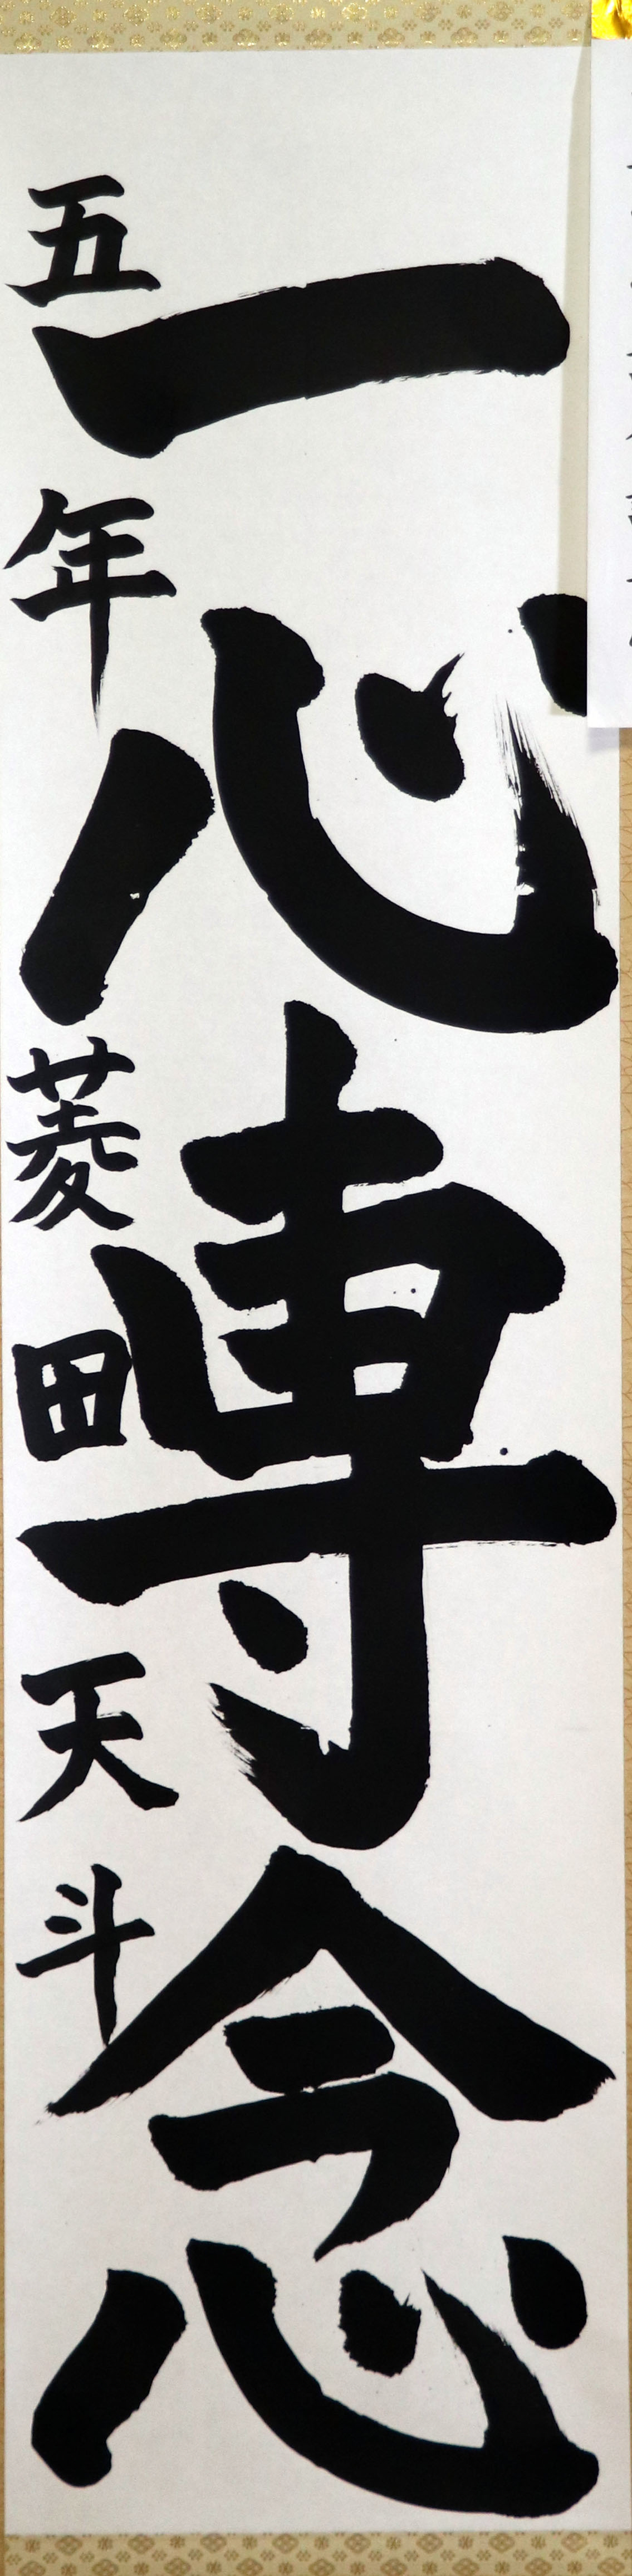 一心専念
五年菱田天斗